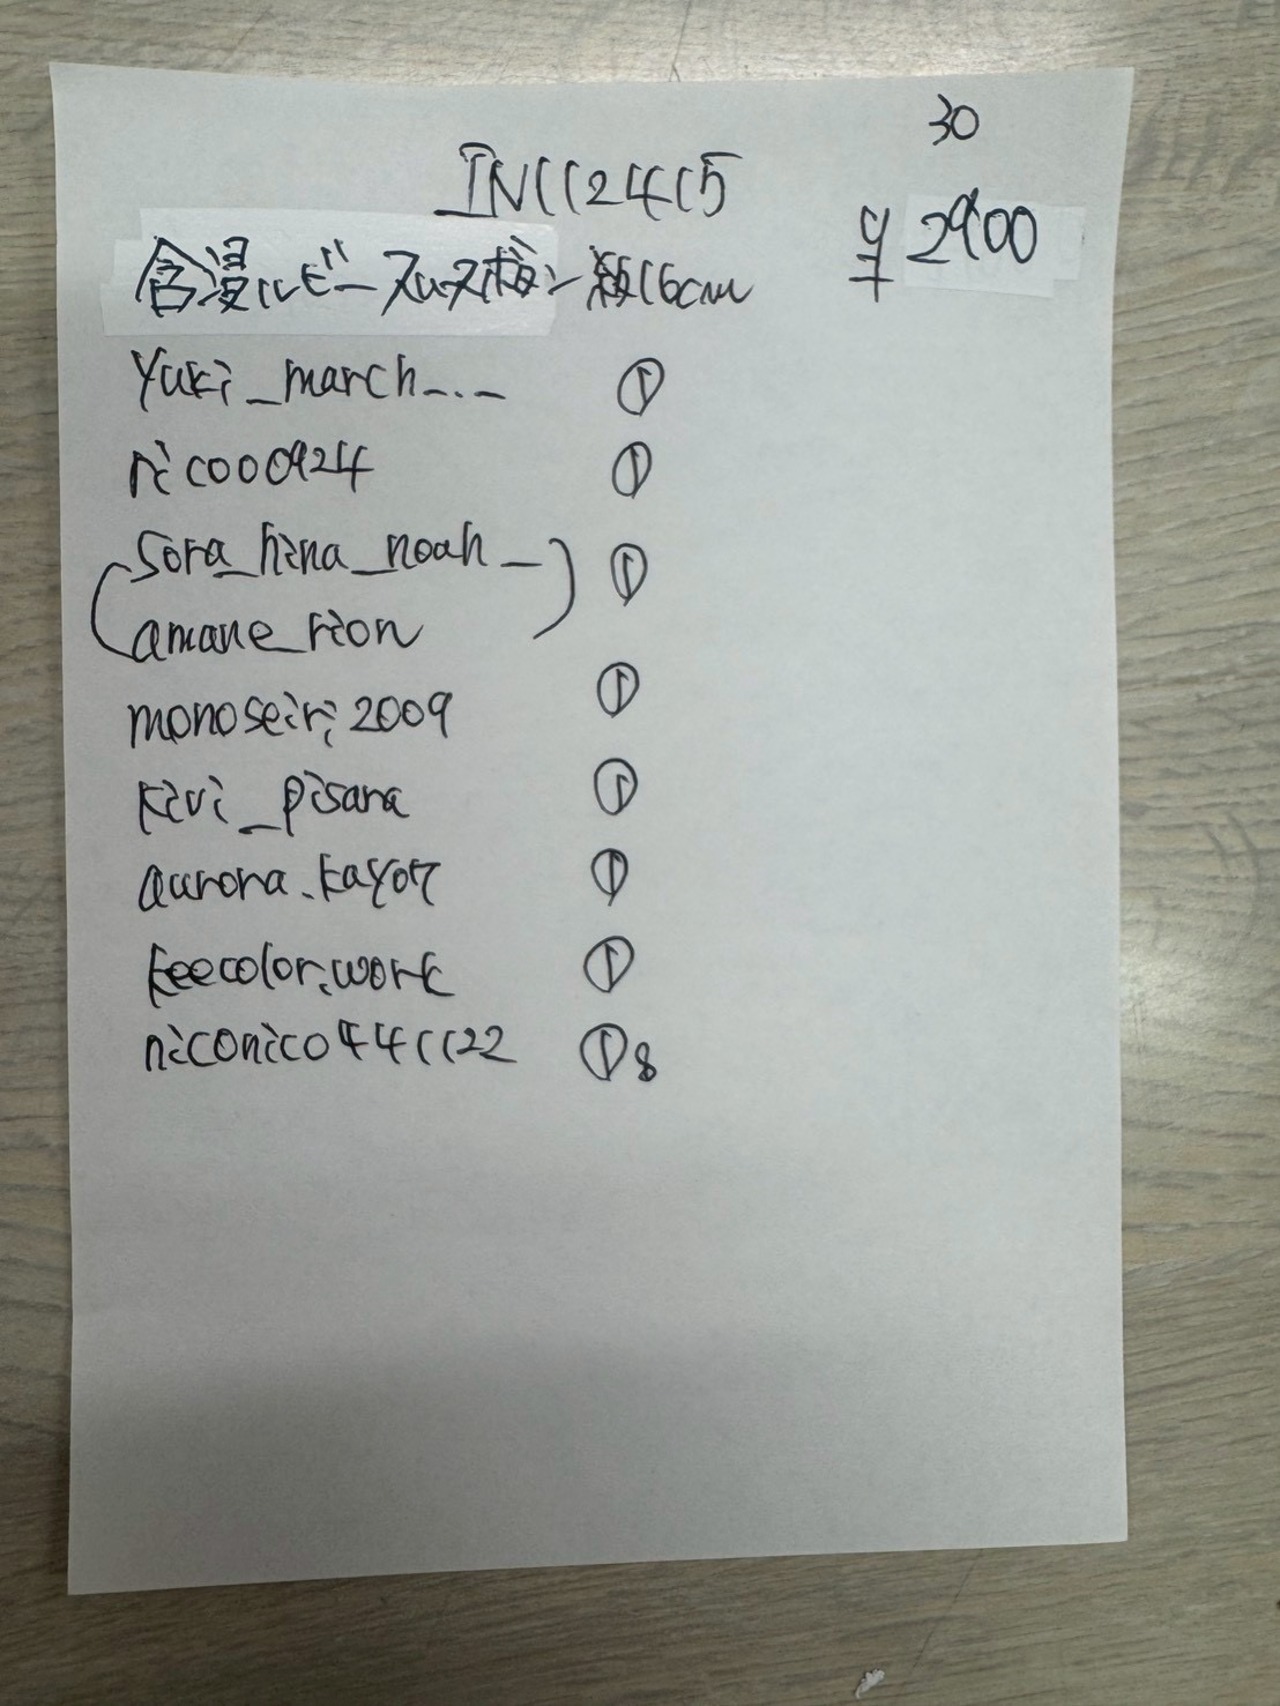 30
IN112415
¥2900
含浸ルビー 約16cm
yuki_march_._
nico00924 ①
sora_hina_noah_ ①
amane_rion
monoseiri2009 ①
kivi_pisara ①
aurora.kayo7 ①
keecolor.work ①
niconico441122 ① 8